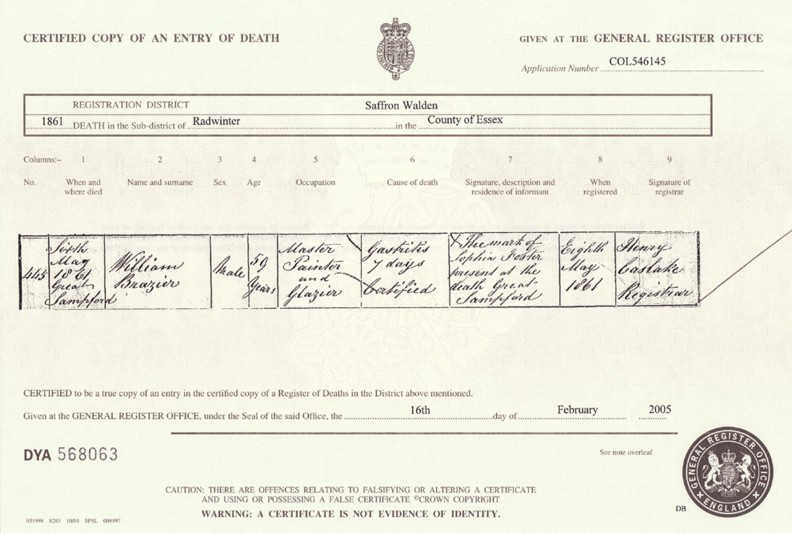 CERTIFIED COPY OF AN ENTRY OF DEATH
GIVEN AT THE GENERAL REGISTER OFFICE
Application Number COL546145
REGISTRATION DISTRICT Saffron Walden
1861 DEATH in the Sub-district of Radwinter in the County of Essex
Columns:- 1 2 3 4 5 6 7 8 9
No. When and where died Name and surname Sex Age Occupation Cause of death Signature, description and residence of informant When registered Signature of registrar
445 Sixth May 1861 Great Sampford
William Brazier
Male
59 Years
Master Painter and Glazier
Gastritis 7 days Certified
The mark of Sophia Foster present at the death Great Sampford
Eighth May 1861
Henry Registrar
CERTIFIED to be a true copy of an entry in the certified copy of a Register of Deaths in the District above mentioned.
Given at the GENERAL REGISTER OFFICE, under the Seal of the said Office, the 16th day of February 2005
DYA 568063
See note overleaf
GENERAL REGISTER OFFICE
ENGLAND
CAUTION: THERE ARE OFFENCES RELATING TO FALSIFYING OR ALTERING A CERTIFICATE
AND USING OR POSSESSING A FALSE CERTIFICATE ©CROWN COPYRIGHT
WARNING: A CERTIFICATE IS NOT EVIDENCE OF IDENTITY.
DB